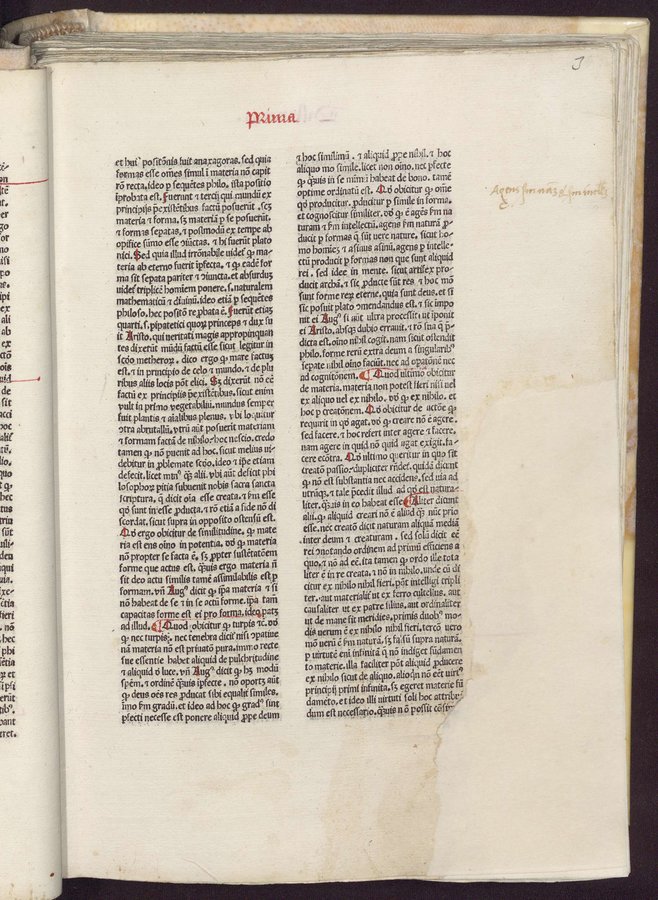 Prima
et huiꝰ positiõnis fuit anaxagoras. sed quia
formas esse omẽs simul ĩ materia nõ capit
rõ recta. ideo ꝑ sequẽtes philo. ista positio
iprobata est. Fuerunt ⁊ tercij qui mundũ ex
principijs p̃existẽtibus factũ posuerũt. sꝫ
materia ⁊ forma. sꝫ materiã ꝑ se posuerũt.
⁊ formas sepatas. ⁊ postmodũ ex tempe ab
opifice sũmo esse ↄiũctas. ⁊ hi fuerũt plato
nici. Sed quia illud irrõnabile videt᷑ ꝙ ma-
teria ab eterno fuerit ĩpfecta. ⁊ ꝙ eadẽ for
ma sit sepata pariter ⁊ ↄiuncta. et absurdũ
videt᷑ triplicẽ hominẽ ponere. s. naturalem
mathematicũ ⁊ diuinũ. ideo etiã ꝑ sequẽtes
philoso. hec positõ rep̃bata ẽ. Fuerũt etiaꝫ
quarti. s. pipatetici quoꝝ princeps ⁊ dux fu
it Aristo. qui veritati magis appropinquan
tes dixerũt mũdũ factũ esse sicut legitur in
scđo metheoꝝ. dico ergo ꝙ mare factuꝫ
est. ⁊ in principio de celo ⁊ mundo. ⁊ de plu
ribus aliis locis põt elici. Sꝫ dixerũt nõ eẽ
factũ ex principijs p̃existẽtibus. sicut enim
vult in primo vegetabiliũ. mundus semper
fuit plantis ⁊ aĩalibus plenus. ⁊ bi loquitur
ↄtra abrutallũ. vtrũ aũt posuerit materiam
⁊ formam factã de nihilo. hoc nescio. credo
tamen ꝙ nõ puenit ad hoc. sicut melius vi-
debitur in ꝓblemate scđo. ideo ⁊ ip̃e etiam
defecit. licet minꝰ q̃ꝫ alii. vbi aũt deficit phi
losophoꝝ pitia subuenit nobis sacra sancta
scriptura. q̃ dicit oĩa esse creata. ⁊ ẽm esse
qđ sunt in esse ꝓducta. ⁊ rõ etiã a fide nõ di
scordat. sicut supra in opposito ostensũ est.
Qđ ergo obicitur de similitudine. ꝙ mate
ria est ens oĩno in potentia. vđ ꝙ materia
nõ propter se facta ẽ. sꝫ ꝓpter sustẽtatõem
forme que actus est. q̃ꝫuis ergo materia nõ
sit deo actu similis tamẽ assimilabilis est ꝑ
formam. vñ Augꝰ dicit ꝙ ip̃a materia ⁊ si
nõ habeat de se ⁊ in se actũ forme. ip̃a tam̃
capacitas forme est ei pro forma. ideo patꝫ
ad illud. Quod obicitur ꝙ turpis ⁊c. vđ
ꝙ nec turpis. nec tenebra dicit᷑ nisi ṗuatiue
nã materia nõ est priuatõ pura. immo recte
sue essentie habet aliquid de pulchritudine
⁊ aliquid ↄ̃ luce. vñ Augꝰ dicit ꝙ hꝫ modũ
spẽm. ⁊ ordinẽ q̃ꝫuis ĩpfecte. nõ oportꝫ aũt
ꝙ deus oẽs res ꝓducat sibi equalit᷑ similes.
imo ẽm gradũ. et ideo ad hoc ꝙ gradꝰ sint
pfecti necesse est ponere aliquid ꝓpe deum
⁊ hoc similimũ. ⁊ aliquid ꝓpe nihil. ⁊ hoc
aliquo mõ simile. licet non oĩno. nec pfecte
ꝙ q̃ꝫuis in se minĩ habeat de bono. tamẽ
optime ordinatũ est. Qđ obicitur ꝙ om̃e
qđ producitur. ꝓducitur ꝑ simile in forma.
et cognoscitur similiter. vđ ꝙ ẽ agẽs ẽm na
turam ⁊ ẽm intellectũ. agens ẽm naturã ꝓ
ducit ꝑ formas q̃ sũt vere nature. sicut ho-
mo homiez ⁊ asinus asinũ. agens ꝑ intelle-
ctũ producit ꝑ formas non que sunt aliquid
rei. sed idee in mente. sicut artifex pro-
ducit archã. ⁊ sic ꝓducte sũt res. ⁊ hoc mõ
sunt forme reꝝ eterne. quia sunt deus. et si
sic posuit plato ↄmendandus est. ⁊ sic impo
nit ei Augꝰ si aũt vltra processit. vt ĩponit
ei Aristo. absqꝫ dubio errauit. ⁊ rõ sua q̃ p̃-
dicta est. oĩno nihil cogit. nam sicut ostendit
philo. forme rerũ extra deum a singularibꝰ
sepate nihil oĩno faciũt. nec ad opatõnẽ nec
ad cognitõnem. Quod vltimo obicitur
de materia. materia non potest fieri nisi vel
ex aliquo vel ex nihilo. vđ ꝙ ex nihilo. et
hoc ꝑ creatõnem. Qđ obicitur de actõe ꝙ
requirit in qđ agat. vđ ꝙ creare nõ ẽ agere.
sed facere. ⁊ hoc refert inter agere ⁊ facere.
nam agere in quid nõ quid agat exigit. fa-
cere ecõtra. Qđ vltimo queritur in quo sit
creatõ passio. dupliciter rñdet᷑. quidã dicunt
ꝙ nõ est substantia nec accidens. sed via ad
vtrũqꝫ. ⁊ tale p̃cedit illud ad qđ est natura-
liter. q̃ꝫuis in eo habeat esse. Aliter dicunt
alii. ꝙ aliquid creari nõ ẽ aliud q̃ꝫ nũc prio
esse. nec creatõ dicit naturam aliquã mediã
inter deum ⁊ creaturam. sed solũ dicit eẽ
rei ↄnotando ordinem ad primũ efficiens a
quo. ⁊ nõ ad eẽ. ita tamen ꝙ ordo ille tota
liter ẽ in re creata. ⁊ nõ in nihilo. vnde cũ di
citur ex nihilo nihil fieri. põt intelligi tripli
ter. aut materialit᷑ vt ex ferro cultellus. aut
causaliter vt ex patre filius. aut ordinaliter
vt de mane fit meridies. primis duobꝰ mo-
dis verum ẽ ex nihilo nihil fieri. tercõ vero
mõ verũ ẽ ẽm naturã. sꝫ falsũ supra naturã.
ꝓ virtutẽ ẽni infinitã q̃ nõ indiget fũdamen
to materie. illa faciliter põt aliquid ꝓducere
ex nihilo sicut de aliquo. alioqñ nõ eẽt virtꝰ
principij primi infinita. sꝫ egeret materie fũ
damẽto. et ideo illi virtuti soli hoc attribuẽ
dum est necessario. q̃ꝫuis nõ possit cõst